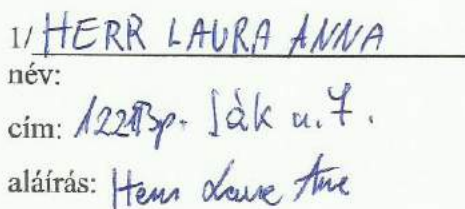 1/ HERR LAURA ANNA
név:
cím: 1221 Bp. Ják u. 7.
aláírás: Herr Laura Anna